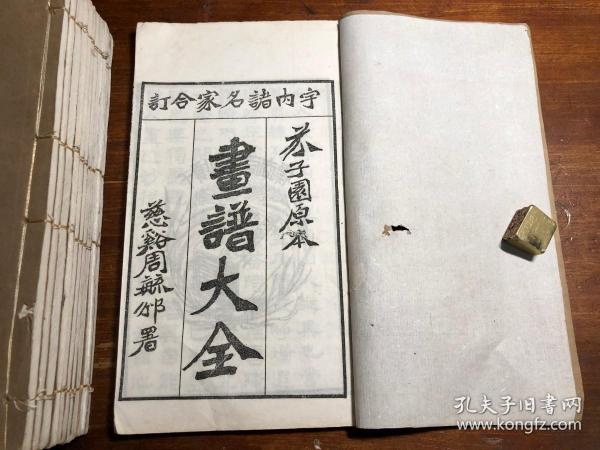 宇內諸名家合訂
芥子園原本
畫譜大全
慈谿周毓邠署
孔夫子旧书网
www.kongfz.com